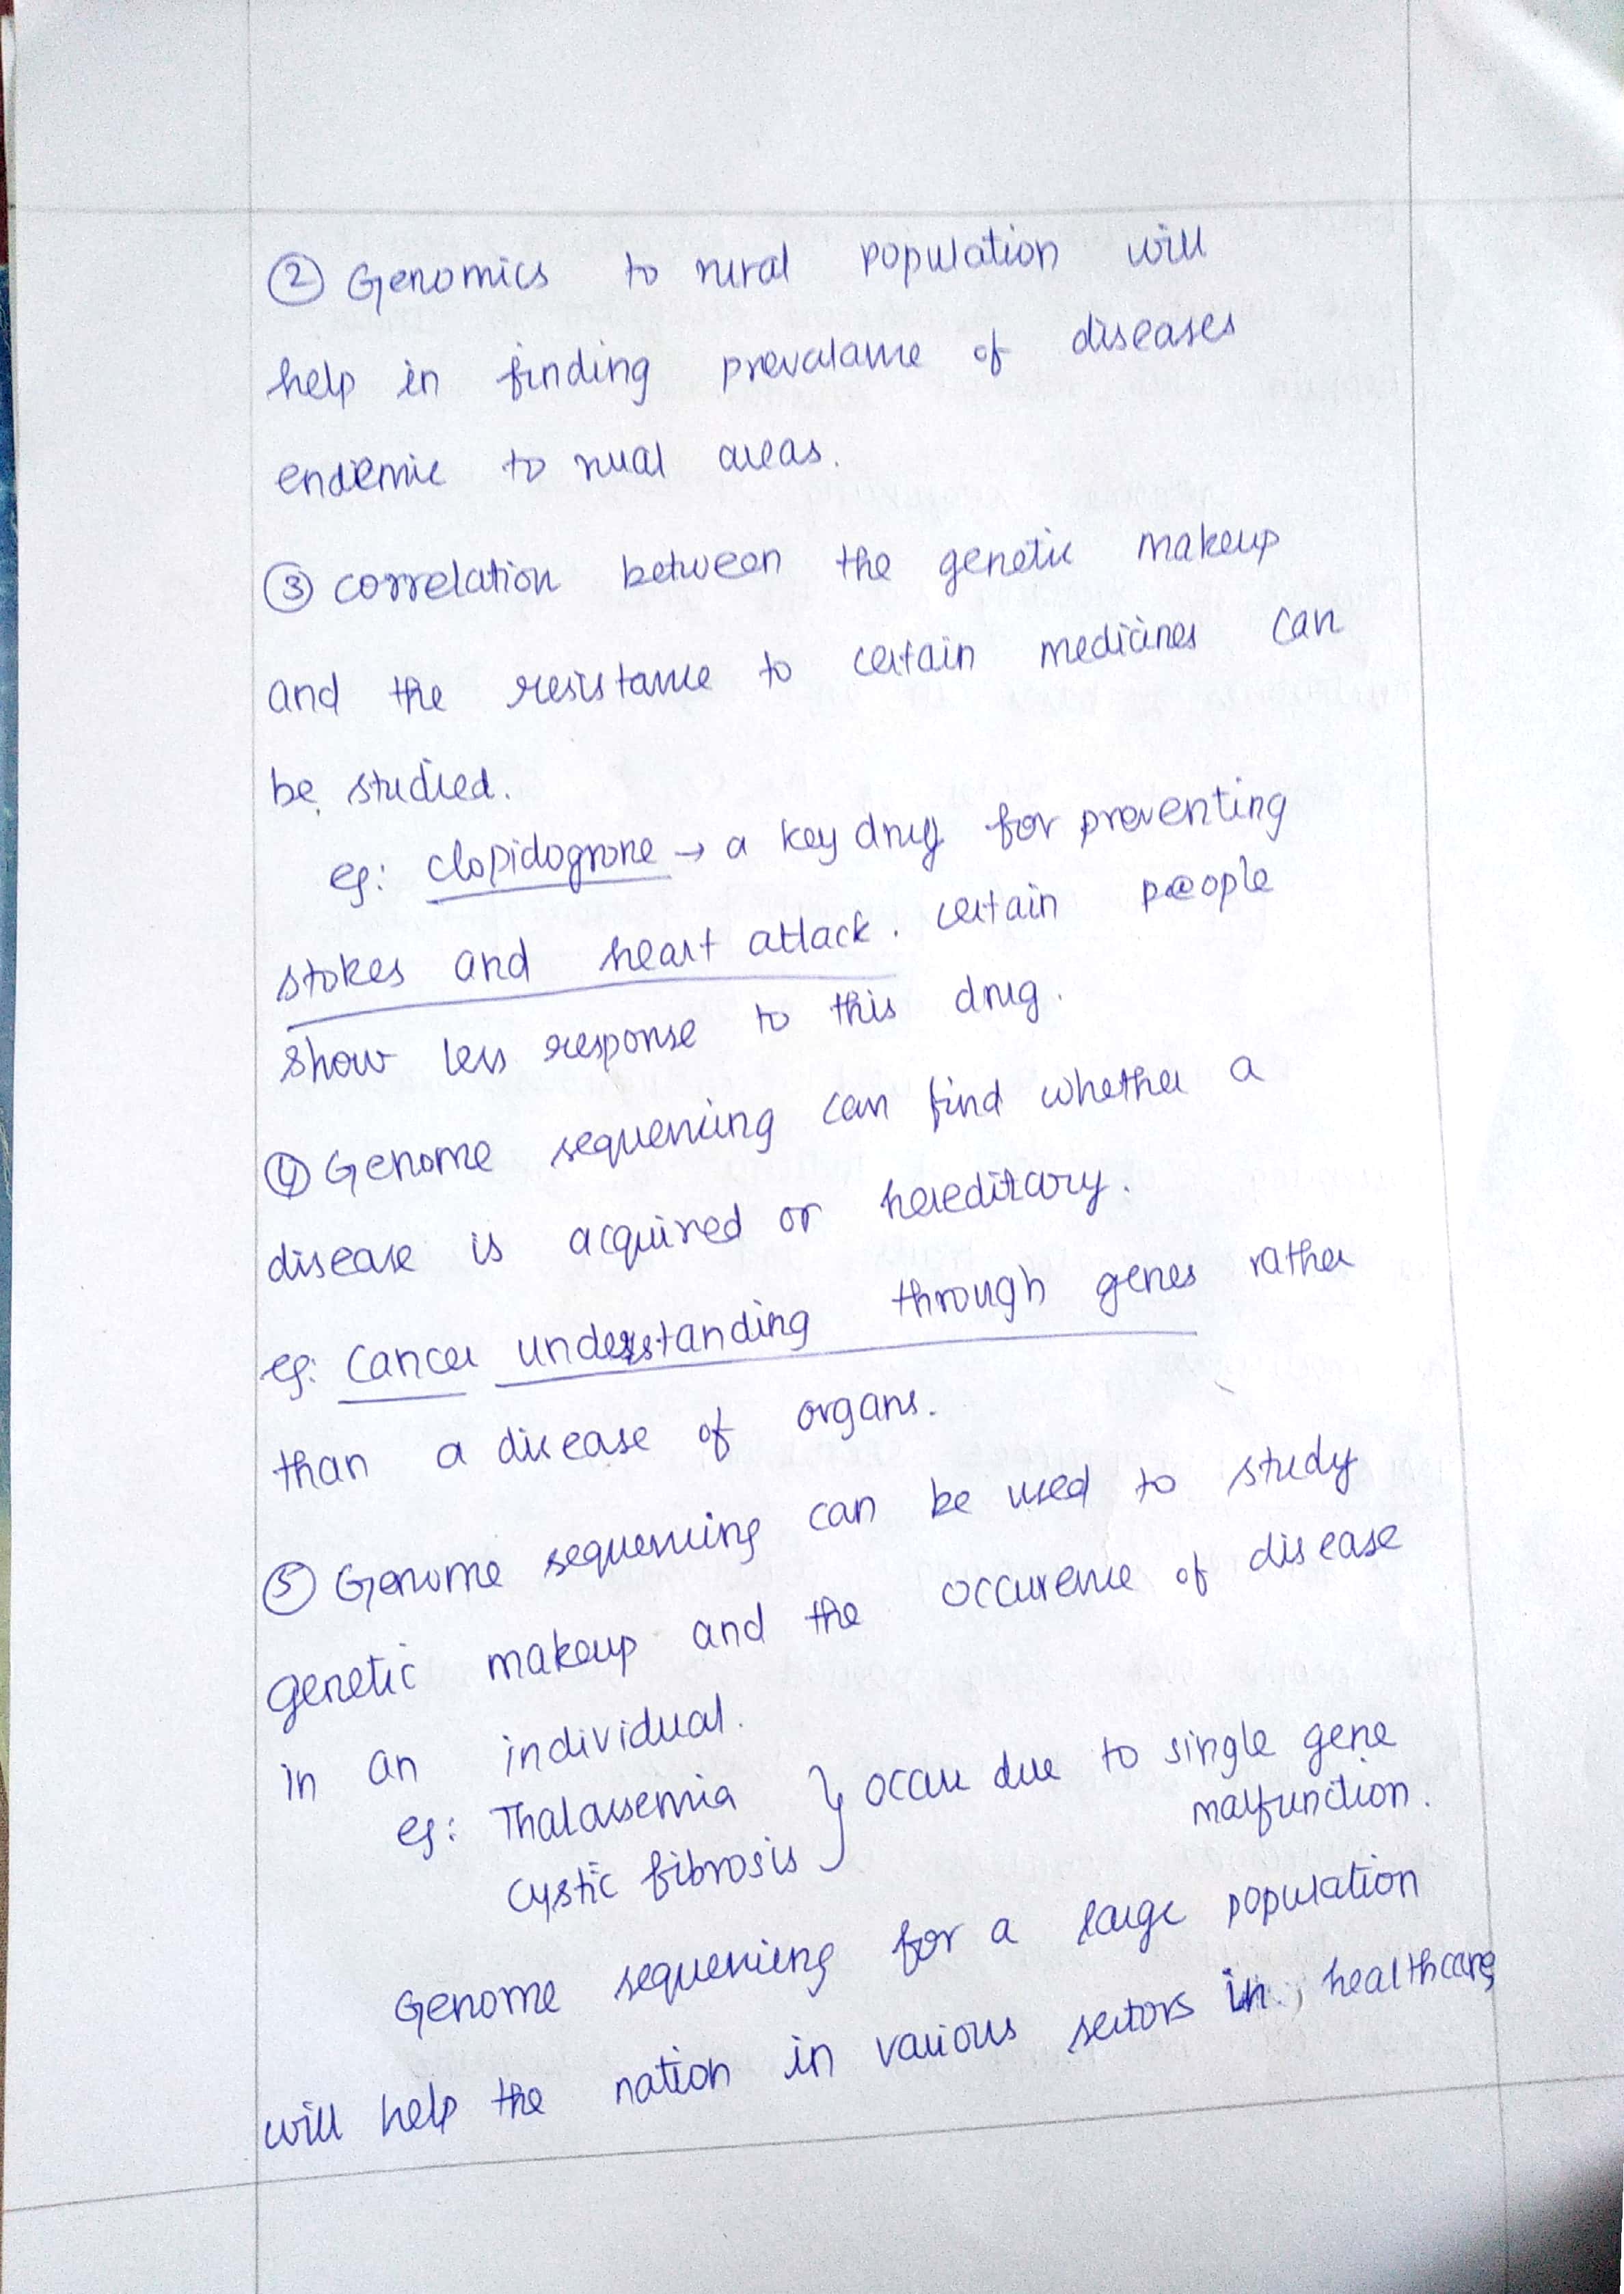 ② Genomics to rural population will
help in finding prevalance of diseases
endemic to rural areas.
③ correlation between the genetic makeup
and the resistance to certain medicines can
be studied.
eg: clopidogrone → a key drug for preventing
stokes and heart attack. certain people
show less response to this drug.
④ Genome sequencing can find whether a
disease is acquired or hereditary.
eg: Cancer understanding through genes rather
than a disease of organs.
⑤ Genome sequencing can be used to study
genetic makeup and the occurence of disease
in an individual.
eg: Thalassemia } occur due to single gene
malfunction.
cystic fibrosis
Genome sequencing for a large population
will help the nation in various sectors in healthcare